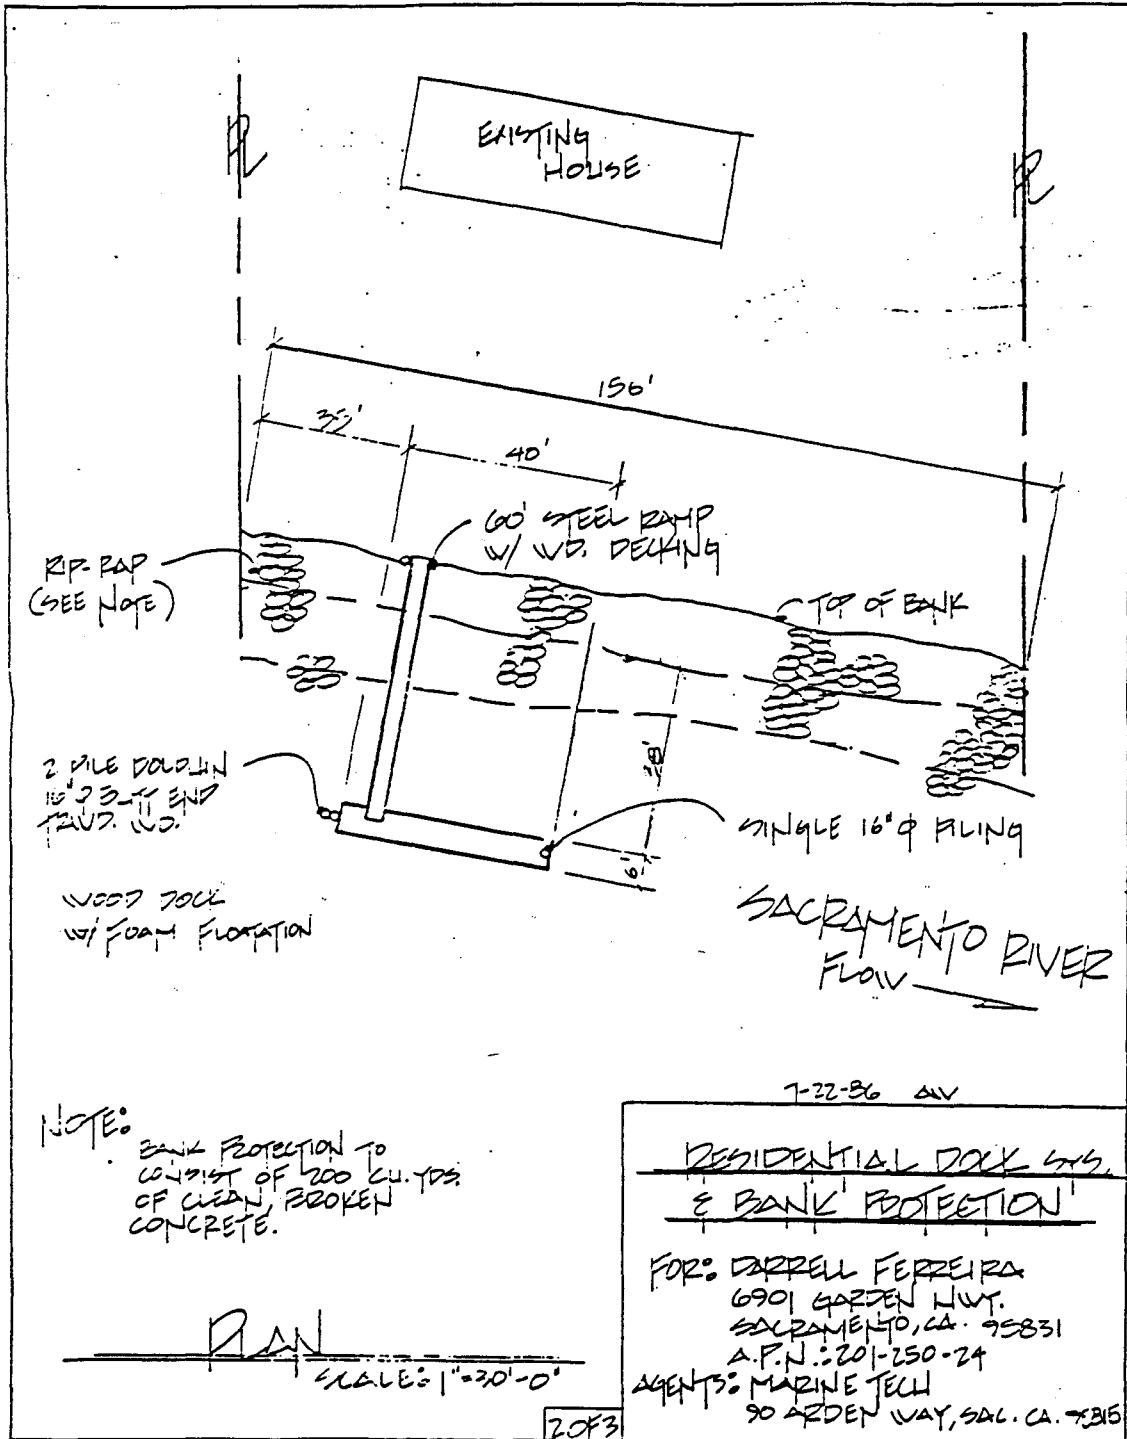 PL
EXISTING
HOUSE
PL
156'
35'
40'
60' STEEL RAMP
W/ WD. DECKING
RIP-RAP
(SEE NOTE)
TOP OF BANK
2 PILE DOLPHIN
END
28'
6'
SINGLE 16"Φ PILING
WOOD DOCK
W/ FOAM FLOATATION
SACRAMENTO RIVER
FLOW
7-22-86
NOTE:
BANK PROTECTION TO
CONSIST OF 200 CU. YDS.
OF CLEAN, BROKEN
CONCRETE.
RESIDENTIAL DOCK SYS.
& BANK PROTECTION
FOR: DARRELL FERREIRA
6901 GARDEN HWY.
SACRAMENTO, CA. 95831
A.P.N.: 201-250-24
AGENTS: MARINE TECH
90 ARDEN WAY, SAC. CA. 95815
PLAN
SCALE: 1"=30'-0"
2 OF 3